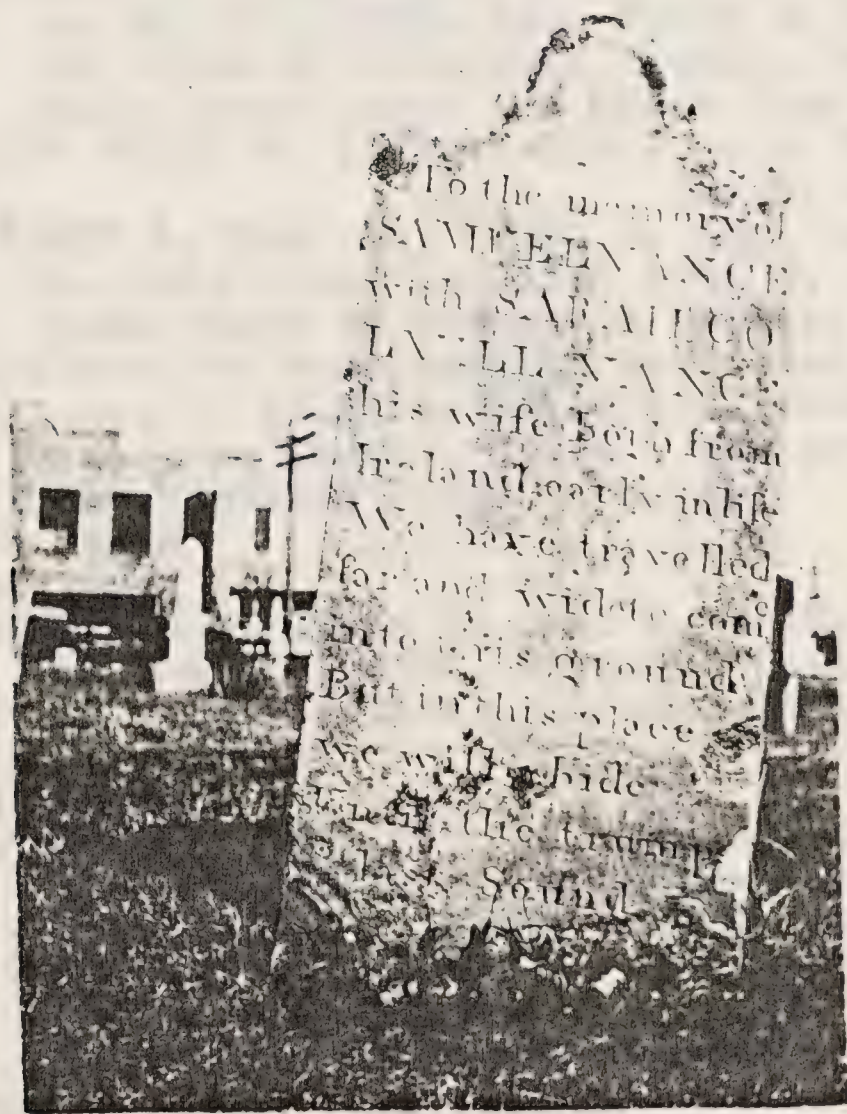 To the memory of
SAMUEL VANCE
with SARAH CO
LVILL VANCE
his wife both from
Ireland early in life
We have travelled
far and wide to come
into this ground
But in this place
we will abide
Until the trump
Sound